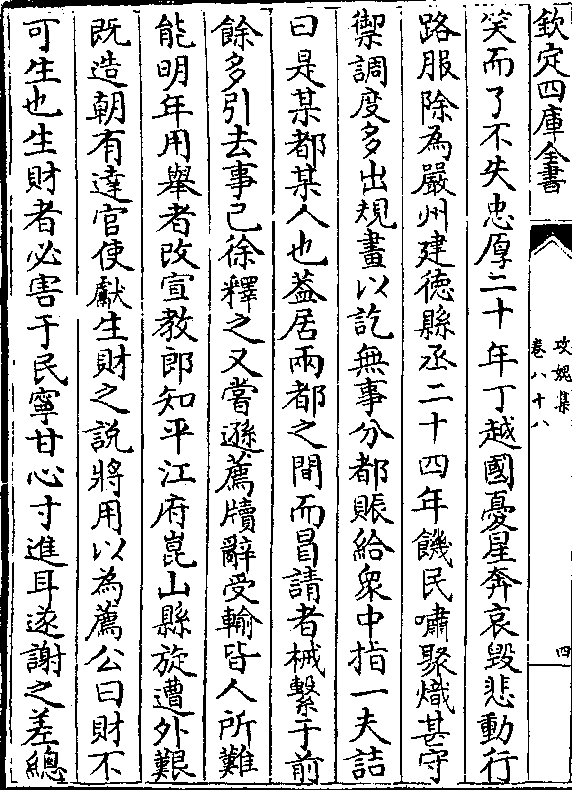 欽定四庫全書
攻媿集
卷八十八
四
笑而了不失忠厚二十年丁越國憂星奔哀毀悲動行
路服除為嚴州建德縣丞二十四年饑民嘯聚熾甚守
禦調度多出規畫以訖無事分都賑給衆中指一夫詰
曰是某都某人也葢居兩都之間而冒請者械繫于前
餘多引去事已徐釋之又嘗遜薦牘辭受輸皆人所難
能明年用舉者改宣教郎知平江府崑山縣旋遭外艱
既造朝有達官使獻生財之説將用以為薦公曰財不
可生也生財者必害于民寧甘心寸進耳遂謝之差總